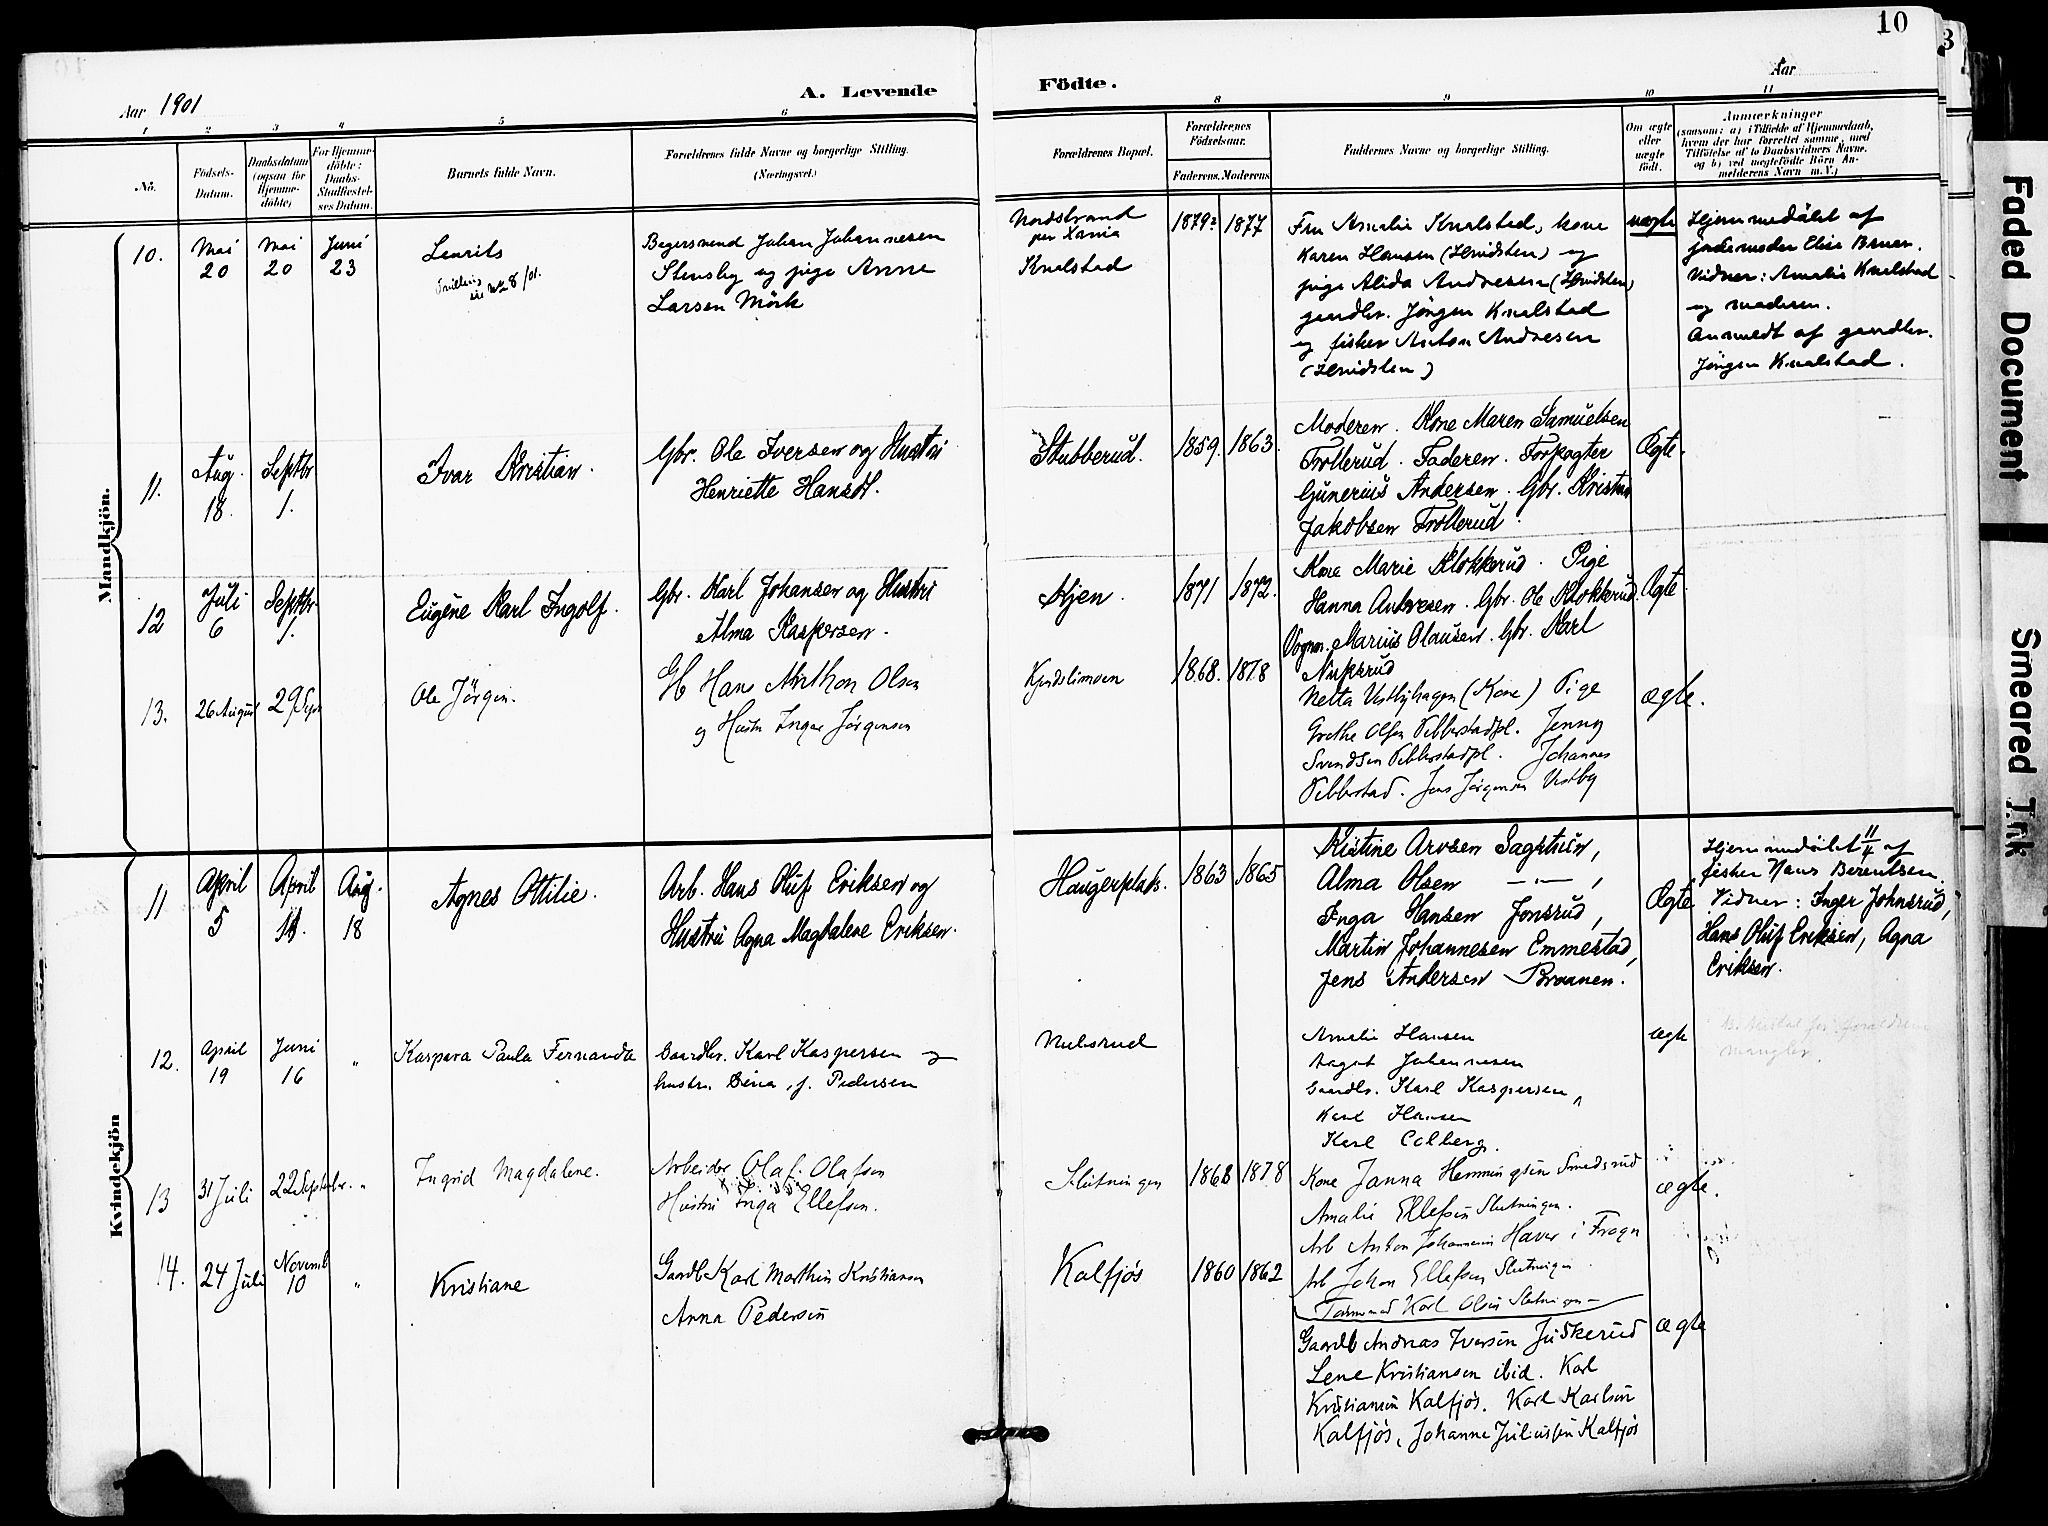 10
Aar 1901
A. Levende
Födte.
Aar
1 2 3 4 5 6 8 9 10 11
No.
Födsels-Datum.
Daabsdatum (ogsaa for Hjemmedöbte)
For Hjemmedöbte: Daabs-Stadfæstelses Datum.
Barnets fulde Navn.
Forældrenes fulde Navne og borgerlige Stilling.
(Næringsvei.)
Forældrenes Bopæl.
Forældrenes Födselsaar.
Faderens. Moderens
Faddernes Navne og borgerlige Stilling.
Om ægte eller uægte födt.
Anmærkninger
(saasom: a) i Tilfælde af Hjemmedaab,
hvem der har forrettet samme, med
Tilföielse af to Daabsvidners Navne.
og b) ved uægtefödte Börn An-
melderens Navn m. V.)
Mandkjön.
10.
Mai 20
Mai 20
Juni 23
Laurits
Tvilling
No 8/01.
Johan Johannesen
Stensby og pige Anne
Larsen Mörk
Nordstrand
per Xania
Knalstad
1879? 1877
Fru Amalie Knalstad, kone
Karen Hansen (Hvidsten) og
pige Alida Andresen (Hvidsten)
gaardbr. Jörgen Knalstad
og fisker Anton Andresen
(Hvidsten)
uægte
Hjemmedöbt af
jordemoder Elise Bruer.
Vidner: Amalie Knalstad
og moderen.
Anmeldt af gaardbr.
Jörgen Knalstad.
11.
Aug. 18.
Septbr 1.
Ivar Kristian.
Gbr. Ole Iversen og Hustru
Henriette Hansdt.
Stubberud.
1859. 1863.
Moderen. Kone Maren Samuelsen
Trollerud. Faderen. Forpagter
Gunerius Andersen. Gbr. Kristian
Jakobsen Trollerud.
Ægte.
12
Juli 6
Septbr. 1.
Eugène Karl Ingolf.
Gbr. Karl Johansen og Hustru
Alma Kaspersen.
Hjen.
1871 1872.
Kone Marie Klokkerud. Pige
Hanna Andresen. Gbr. Ole Klokkerud.
Vognm. Marius Olausen. Gbr. Karl
Ægte
13.
26 August
29 Sept
Ole Jörgen.
Gb Hans Anthon Olsen
og Hustru Inger Jörgensen
1868. 1878
Netta Vestbyhagen (Kone) Pige
Grethe Olsen Vebberstadpl. Jenny
Svendsen Vebberstadpl. Johannes
Vebberstad. Jens Jörgensen Vestby
ægte.
Kvindekjön
11
April 5
April 11.
Aug. 18
Agnes Ottilie.
Arb. Hans Oluf Eriksen og
Hustru Agna Magdalene Eriksen.
Haugerplads.
1863 1865
Kistine Arvesen Sagstuen,
Alma Olsen —"— ,
Inga Hansen Jonsrud,
Martin Johannesen Emmestad,
Jens Andersen Braanen.
Ægte
Hjemmedöbt 11/4 af
fisker Hans Berentsen.
Vidner: Inger Johnsrud,
Hans Oluf Eriksen, Agna
Eriksen.
12.
April 19
Juni 16
"
Kaspara Paula Fernanda
Gaardbr. Karl Kaspersen og
hustru Lina, f. Pedersen
Amalie Hansen
Aagot Johannesen
Gaardbr. Karl Kaspersen,
Karl Hansen
Karl Colberg.
ægte
forældrene
mangler.
13
31 Juli
22 Septembr.
"
Ingrid Magdalene.
Arbeider Olaf Olafsen
Hustru Inga Ellefsen.
Slutningen
1868 1878
Kone Janna Hemmingsen Smedsrud
Amalie Ellefsen Slutningen.
Arb Anton Johannesen Haver i Frogn
Arb Johan Ellefsen Slutningen
Karl Olsen Slutningen
ægte.
14.
24 Juli
Novemb 10
"
Kristiane
Gaardb Karl Marthin Kristiansen
Anna Pedersen
Kalfjös
1860 1862
Gaardb Andreas Iversen Juskerud
Lene Kristiansen ibid. Karl
Kristiansen Kalfjös. Karl Karlsen
Kalfjös, Johanne Juliussen Kalfjös
ægte
Faded Document
Smeared Ink